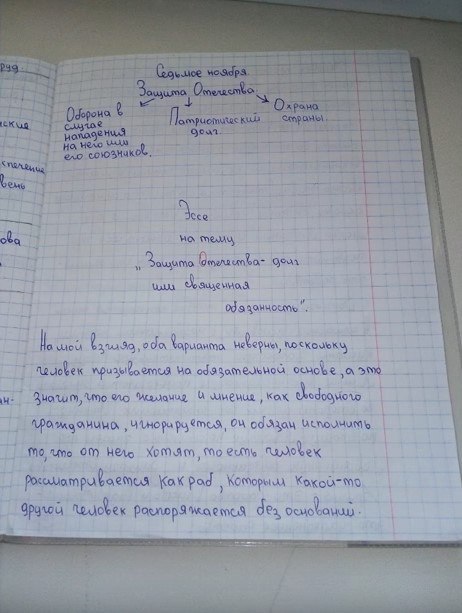 руд.
ские
спечение
вень
ова
ан-
Седьмое ноября.
Защита Отечества.
Оборона в
случае
нападения
на него или
его союзников.
Патриотический
долг.
Охрана
страны.
Эссе
на тему
„Защита Отечества- долг
или священная
обязанность".
На мой взгляд, оба варианта неверны, поскольку
человек призывается на обязательной основе, а это
значит, что его желание и мнение, как свободного
гражданина, игнорируется, он обязан исполнить
то, что от него хотят, то есть человек
рассматривается как раб, которым какой-то
другой человек распоряжается без оснований.